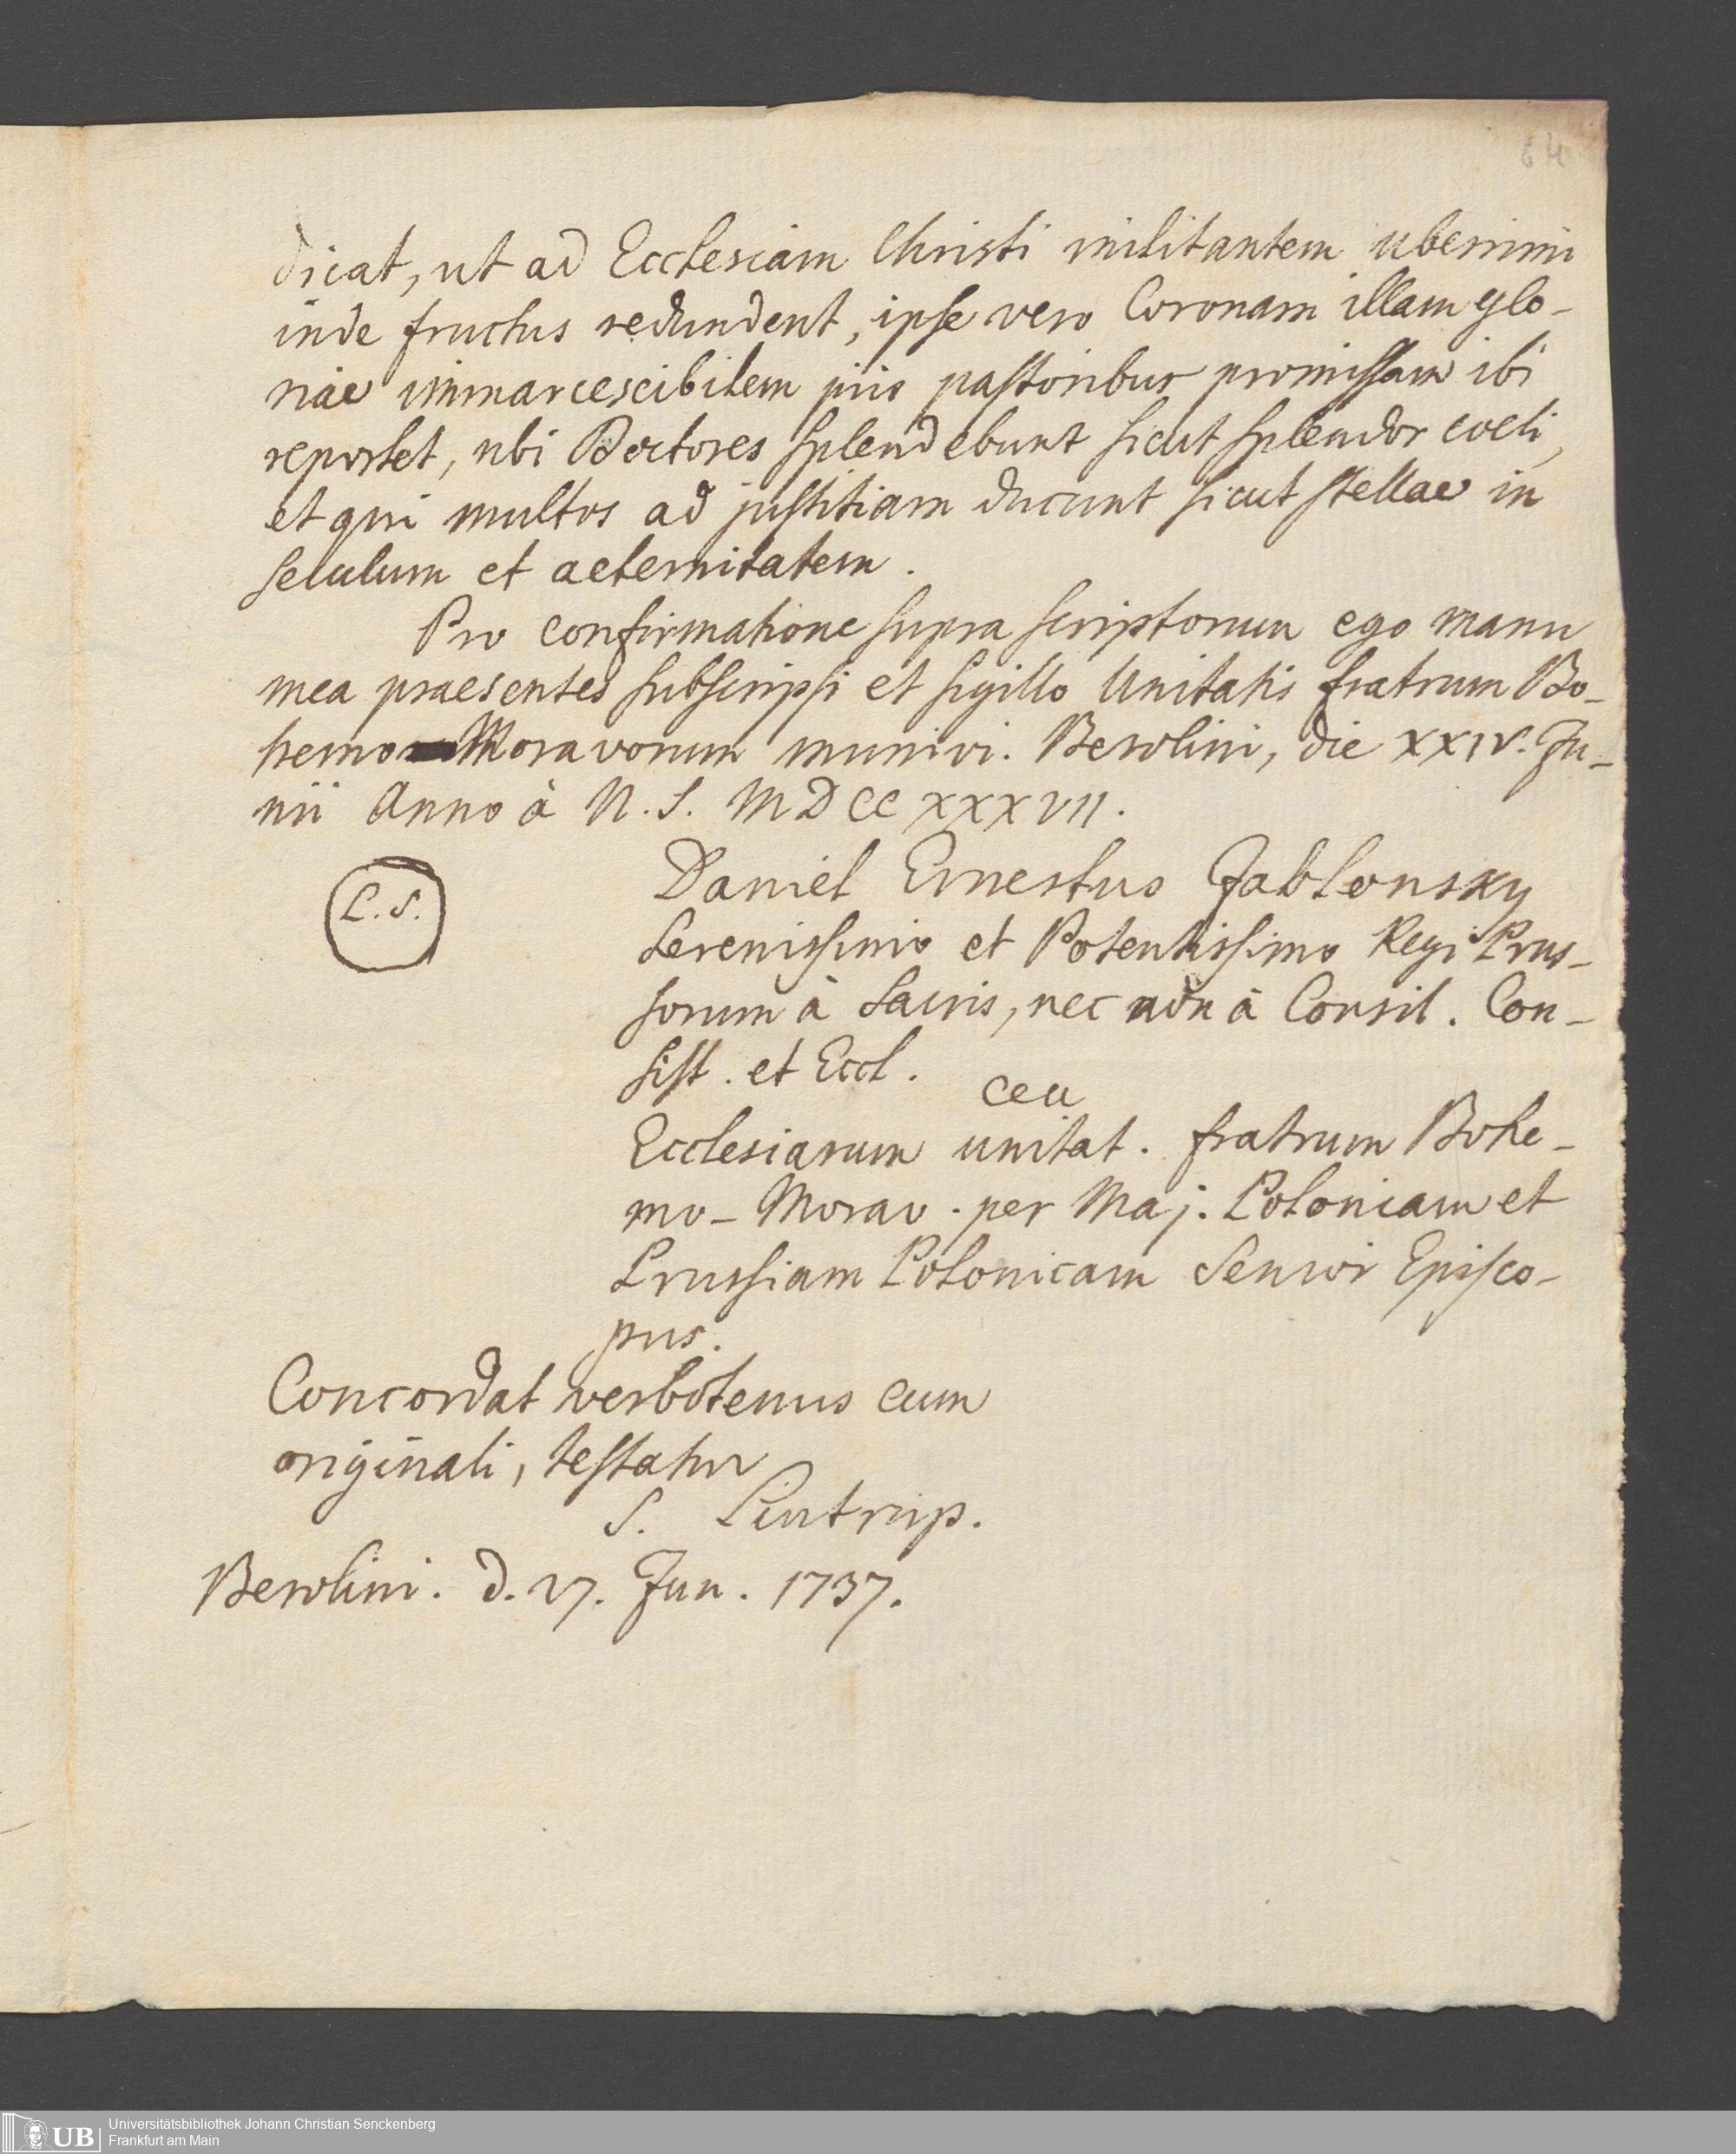 64
dicat, ut ad Ecclesiam Christi militantem uberrimi
inde fructus redundent, ipse vero Coronam illam glo-
riae immarcescibilem piis pastoribus promissam ibi
reportet, ubi Doctores splendebunt sicut splendor coeli,
et qui multos ad justitiam ducunt sicut stellae in
seculum et aeternitatem.
Pro confirmatione supra scriptorum ego manu
mea praesentes subscripsi et sigillo Unitatis fratrum Bo-
hemo Moravorum munivi. Berolini, die XXIV. Ju-
nii Anno à N. S. MDCCXXXVII.
L. S.
Daniel Ernestus Jablonsky
Serenissimo et Potentissimo Regi Prus-
sorum à Sacris, nec non à Consil. Con-
sist. et Eccl.
ceu
Ecclesiarum unitat. fratrum Bohe-
mo-Morav. per Maj. Poloniam et
Prussiam Polonicam Senior Episco-
pus.
Concordat verbotenus cum
originali, testatur
S. Lintrup.
Berolini. d. 27. Jun. 1737.
UB Universitätsbibliothek Johann Christian Senckenberg
Frankfurt am Main